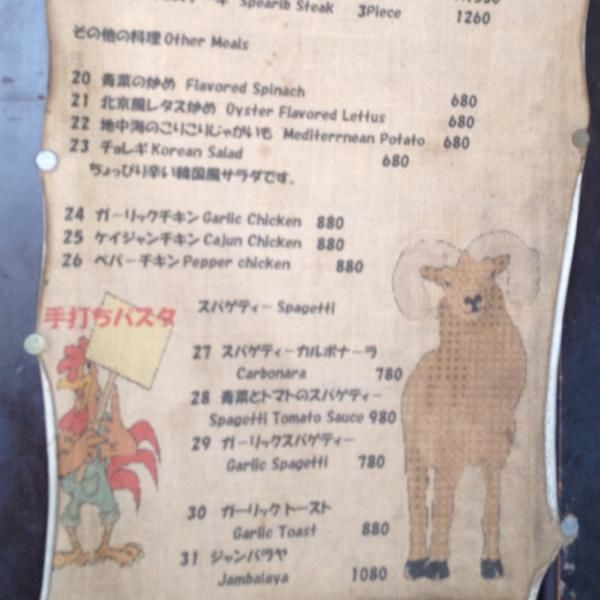 Spearib Steak 3Piece 1260
その他の料理 Other Meals
20 青菜の炒め Flavored Spinach 680
21 北京風レタス炒め Oyster Flavored Lettus 680
22 地中海のこりこりじゃがいも Mediterrnean Potato 680
23 チョレギ Korean Salad 680
ちょっぴり辛い韓国風サラダです。
24 ガーリックチキン Garlic Chicken 880
25 ケイジャンチキン Cajun Chicken 880
26 ペパーチキン Pepper chicken 880
手打ちパスタ
スパゲティー Spagetti
27 スパゲティーカルボナーラ
Carbonara 780
28 青菜とトマトのスパゲティー
Spagetti Tomato Sauce 980
29 ガーリックスパゲティー
Garlic Spagetti 780
30 ガーリックトースト
Garlic Toast 880
31 ジャンバラヤ
Jambalaya 1080